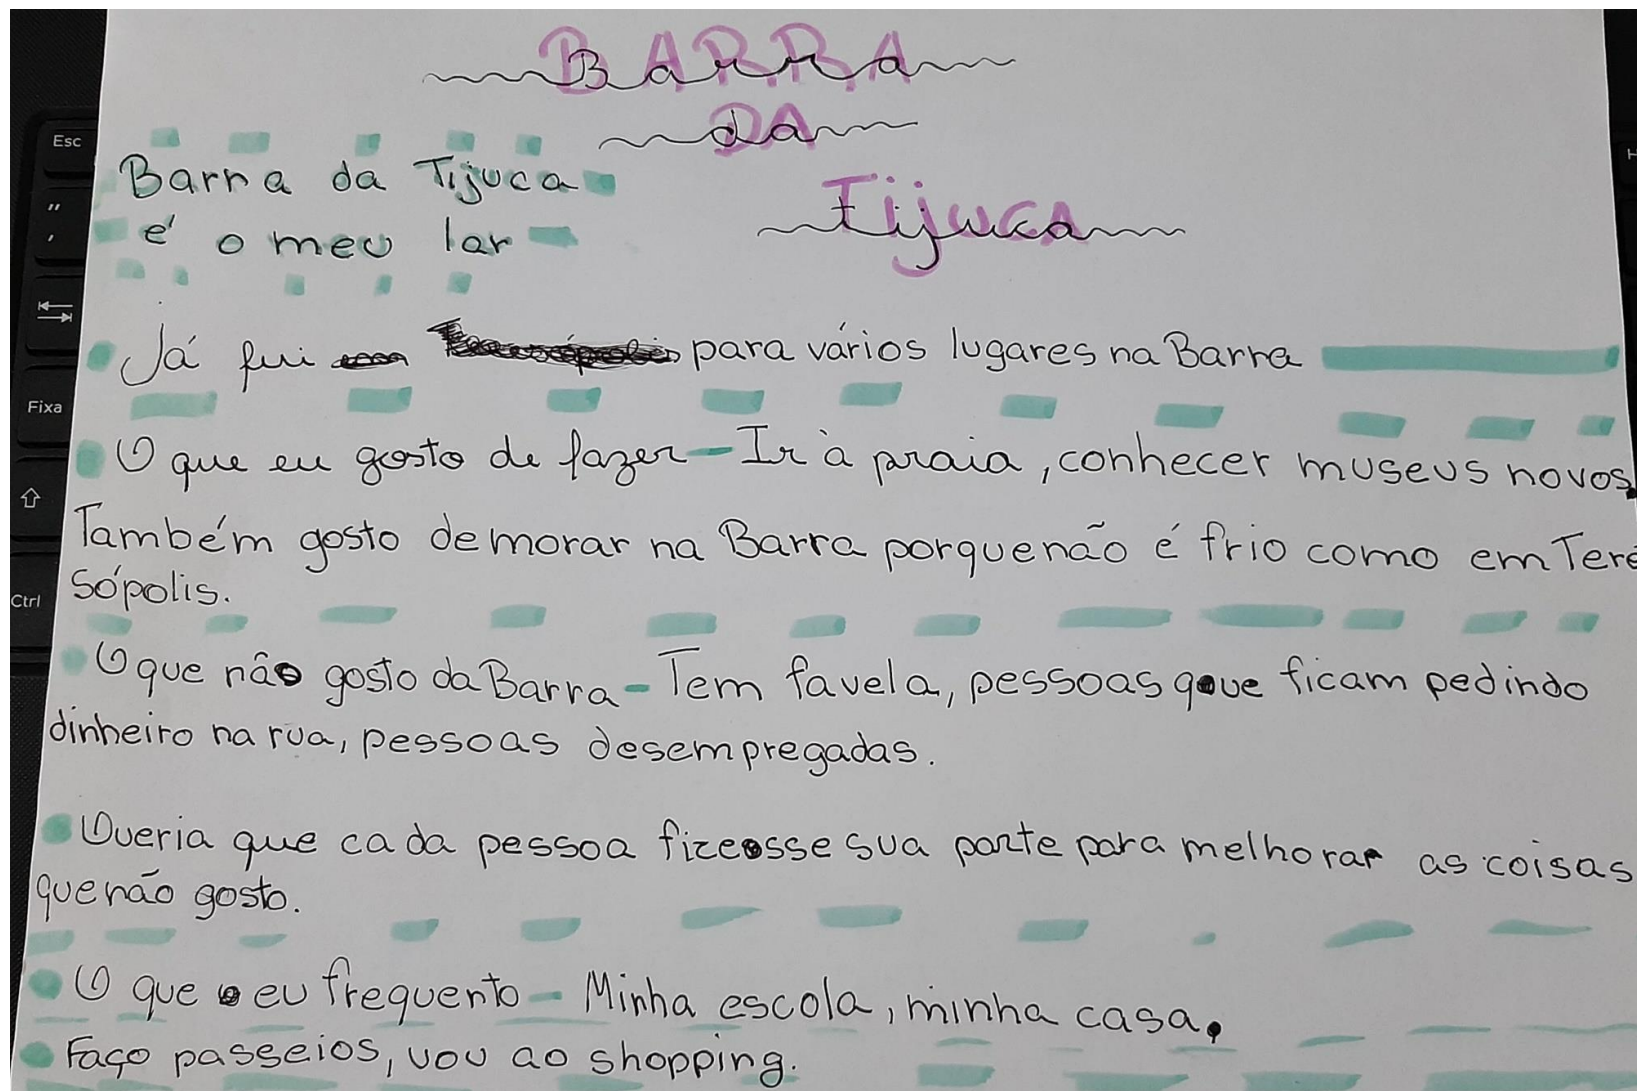 Barra
da
Tijuca
Barra da Tijuca
é o meu lar
Já fui para vários lugares na Barra
O que eu gosto de fazer - Ir à praia, conhecer museus novos.
Também gosto de morar na Barra porque não é frio como em Tere
sópolis.
O que não gosto da Barra - Tem favela, pessoas que ficam pedindo
dinheiro na rua, pessoas desempregadas.
Queria que cada pessoa fizesse sua parte para melhorar as coisas
que não gosto.
O que eu frequento - Minha escola, minha casa.
Faço passeios, vou ao shopping.
Esc
Fixa
Ctrl